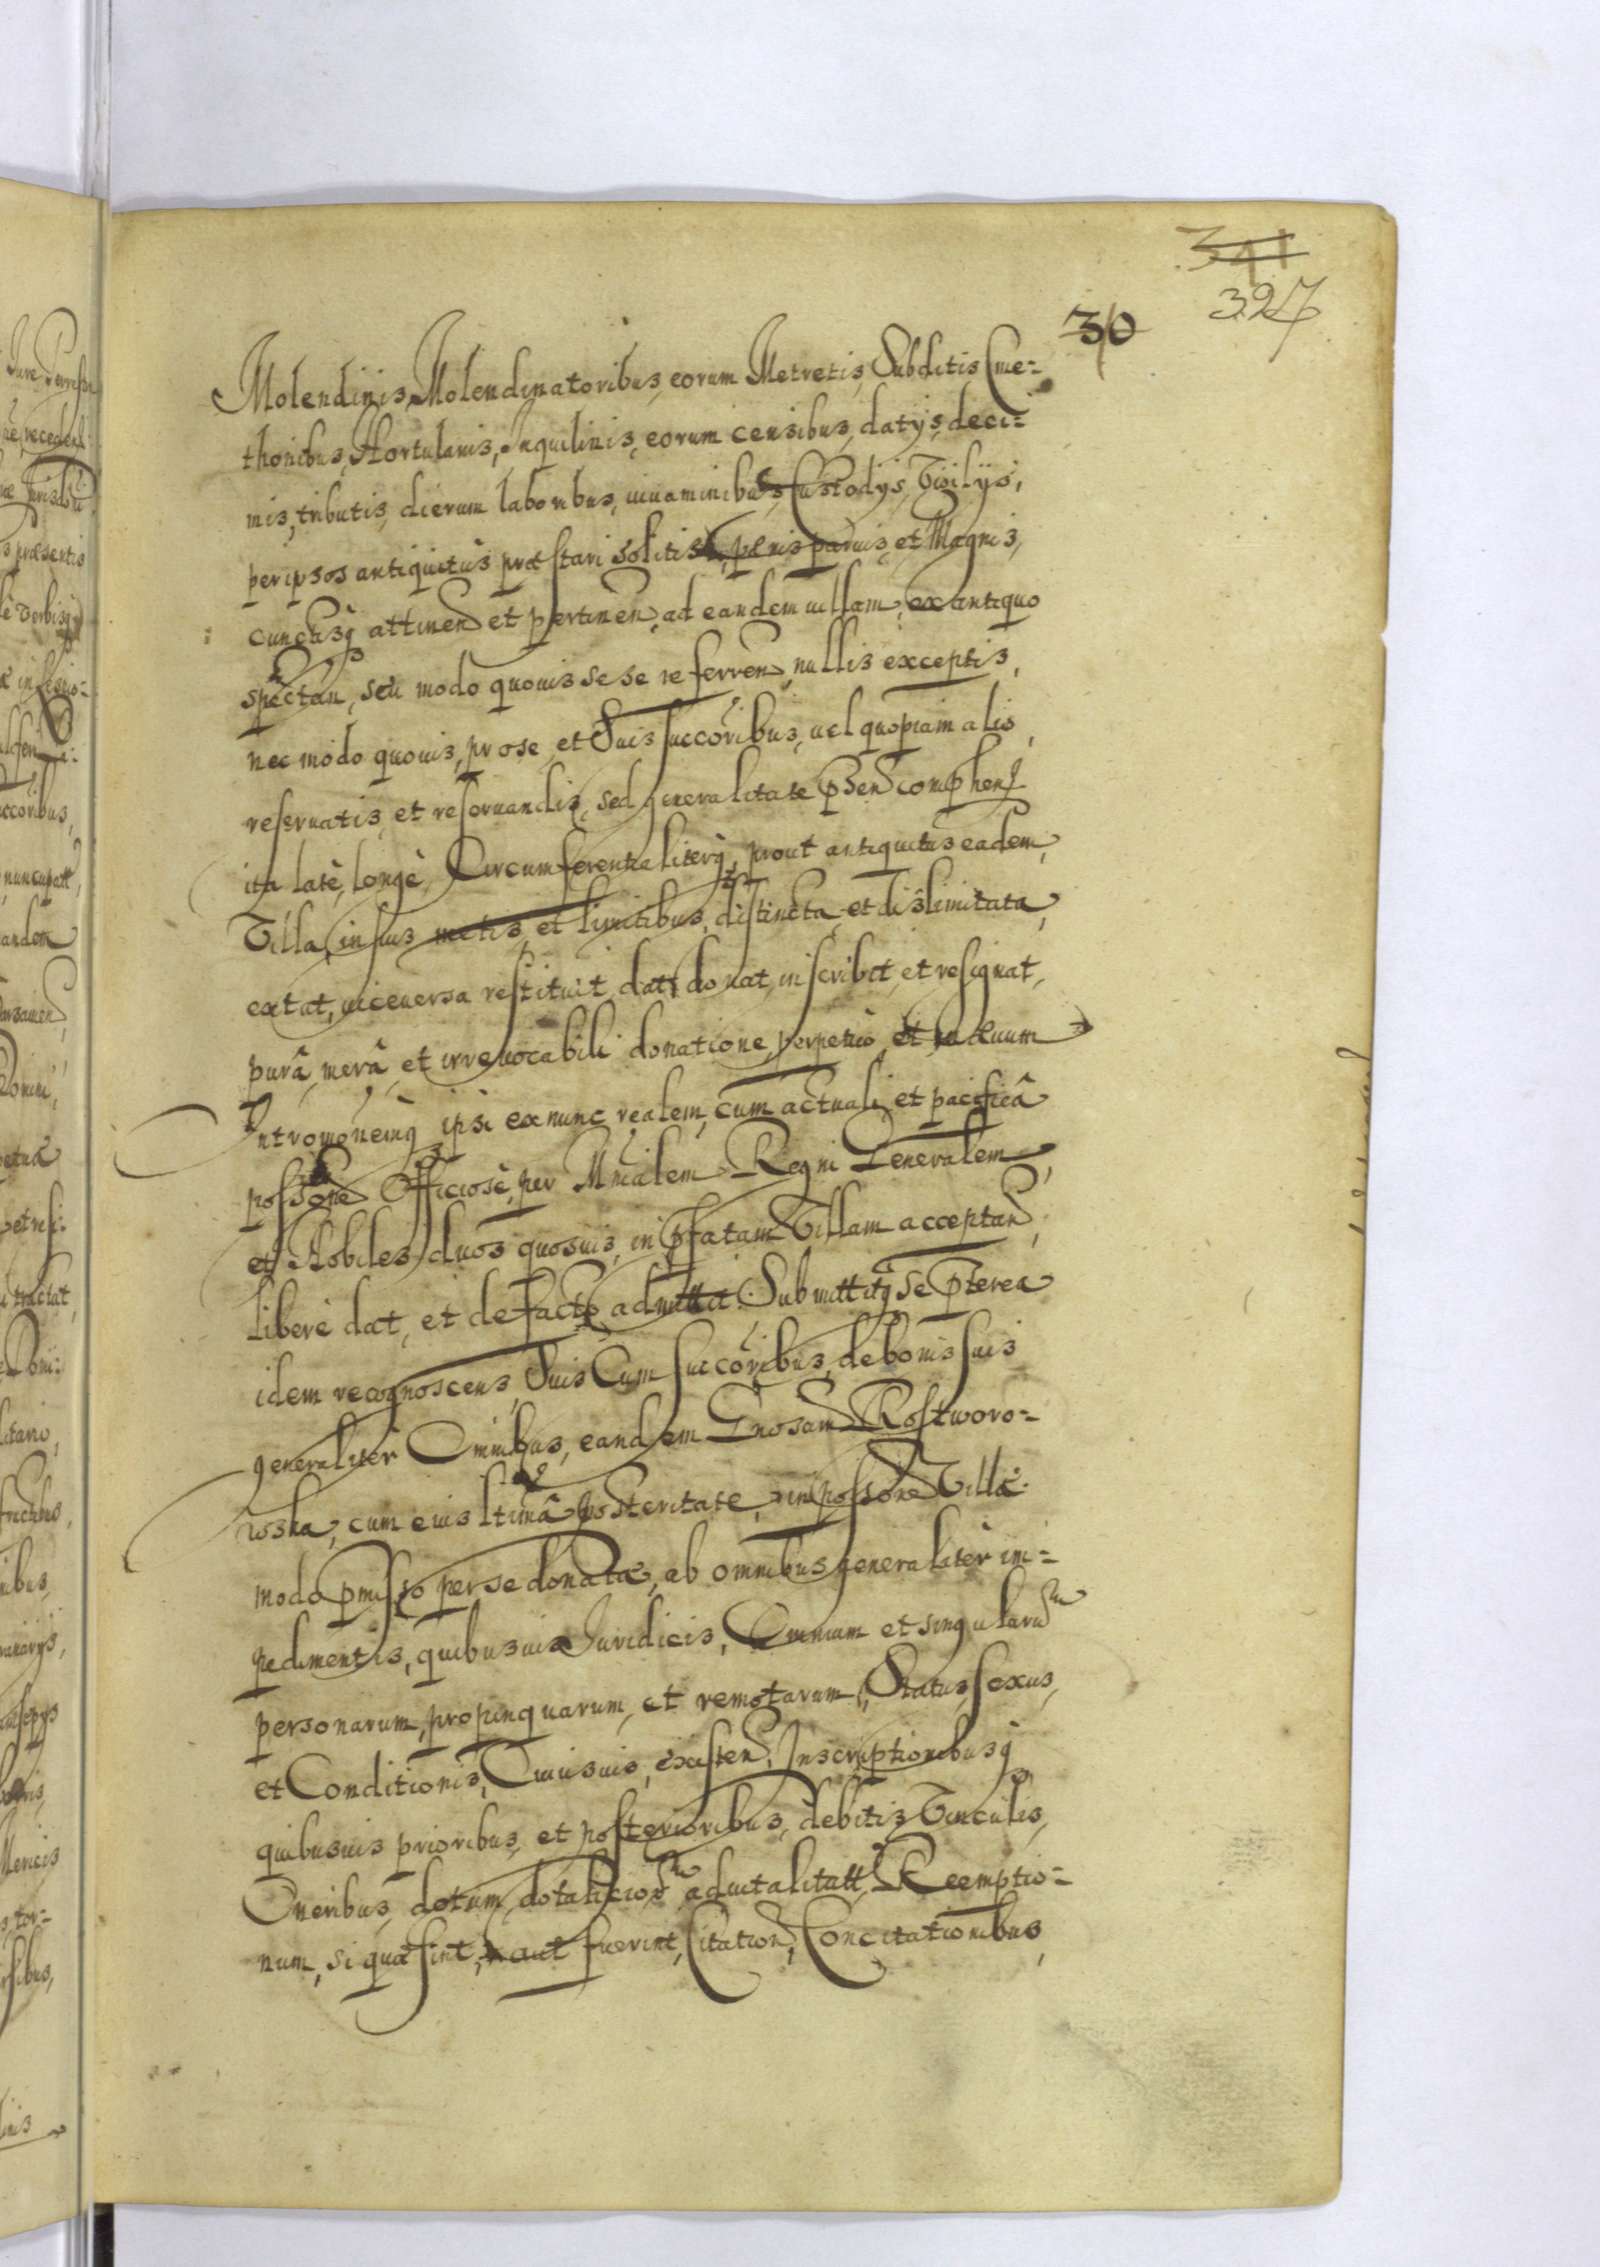 341
327
30
Molendinis, Molendinatoribus, eorum Metretis, Subditis Cme-
thonibus, Hortulanis, Inquilinis, eorum censibus, datijs, deci-
mis, tributis, dierum laboribus, iuuaminibus, Custodijs, Vigilijs,
per ipsos antiquitùs præstari solitis, pænis paruis, et Magnis,
cunctisq attinen et pertinen, ad eandem uillam, ex antiquo
spectan, seu modo quouis se se referren, nullis exceptis,
nec modo quouis, pro se et Suis succoribus, uel quopiam alio
reseruatis, et reseruandis, sed generalitate psen comphens
ita latè, longè, Circumferentialiterq, prout antiquitus eadem
Villa, in suis metis, et limitibus, distincta, et dislimitata
extat, uiceuersa restituit, dat, donat, inscribit, et resignat,
purâ, merâ, et irreuocabili donatione, perpetuò, et in æuum
Intromoñemq ipsi ex nunc realem, cum actuali et pacificâ
possone Officiosè, per Mnialem Regni Generalem
et Nobiles duos quosuis, in pfatam Villam acceptan
liberè dat, et de facto admittit. Submittitq se pterea
idem recognoscens, Suis Cum succoribus, de bonis suis
generalitèr Omnibus, eandem Gnosam Rostworo-
wska, cum eius ltimâ posteritate, in possone Villæ
modo pmisso per se donatæ, ab omnibus generalitèr im-
pedimentis, quibusuis Iuridicis, Omnium et singularum
personarum, propinquarum, et remotarum, Status, sexus,
et Conditionis, Cuiusuis, existen, Inscriptionibusq
quibusuis prioribus, et posterioribus, debitis, Vinculis,
Oneribus, dotum, dotalicior, aduitalitatt, Reemptio-
num, si quæ sint, aut fuerint, Citation, Concitationibus,